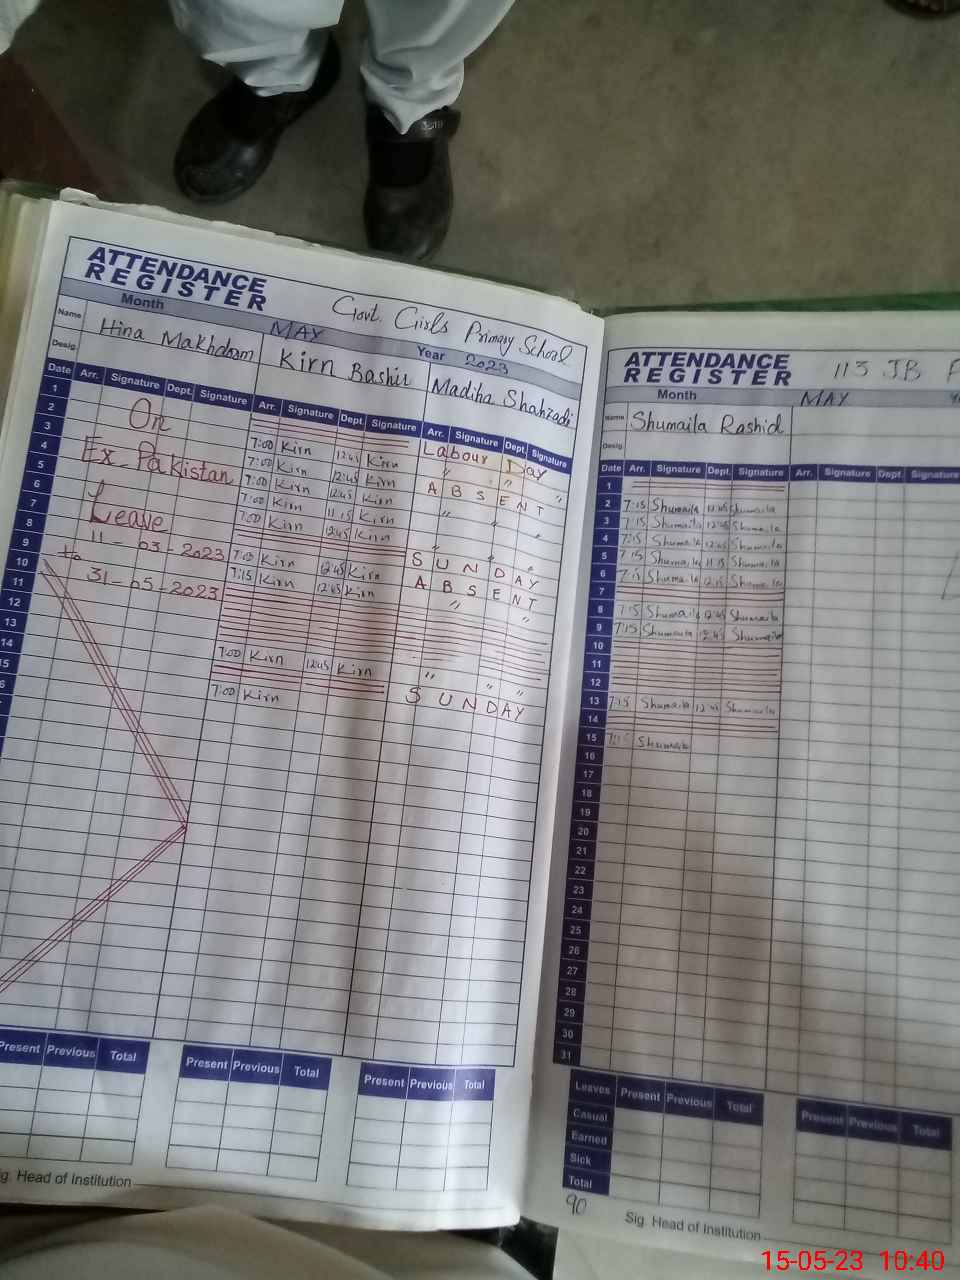 3510
ATTENDANCE
REGISTER
Govt. Girls Primary School
Month MAY Year 2023
Name Hina Makhdoom Kirn Bashir Madiha Shahzadi
Desig
Date Arr. Signature Dept. Signature Arr. Signature Dept. Signature Arr. Signature Dept. Signature
1 Labour Day
2 On 7:00 Kirn 12:45 Kirn " " "
3 7:00 Kirn 12:45 Kirn A B S E N T
4 Ex-Pakistan 7:00 Kirn 12:45 Kirn " " "
5 7:00 Kirn 11:15 Kirn
6 Leave 7:00 Kirn 12:45 Kirn " " "
7 11-03-2023 S U N D A Y
8 to 7:00 Kirn 12:45 Kirn A B S E N T
9 31-05-2023 7:15 Kirn 12:45 Kirn " "
10
11
12
13 7:00 Kirn 12:45 Kirn " " "
14 S U N D A Y
15 7:00 Kirn
6
Present Previous Total Present Previous Total Present Previous Total
ig. Head of Institution
ATTENDANCE
REGISTER
113 JB F
Month MAY
Name Shumaila Rashid
Desig
Date Arr. Signature Dept. Signature Arr. Signature Dept Signature
1
2 7:15 Shumaila 12:45 Shumaila
3 7:15 Shumaila 12:45 Shumaila
4 7:15 Shumaila 12:45 Shumaila
5 7:15 Shumaila 11:15 Shumaila
6 7:15 Shumaila 12:15 Shumaila
7
8 7:15 Shumaila 12:45 Shumaila
9 7:15 Shumaila 12:45 Shumaila
10
11
12
13 7:15 Shumaila 12:45 Shumaila
14
15 7:15 Shumaila
16
17
18
19
20
21
22
23
24
25
26
27
28
29
30
31
Leaves Present Previous Total Present Previous Total
Casual
Earned
Sick
Total
90
Sig. Head of Institution
15-05-23 10:40